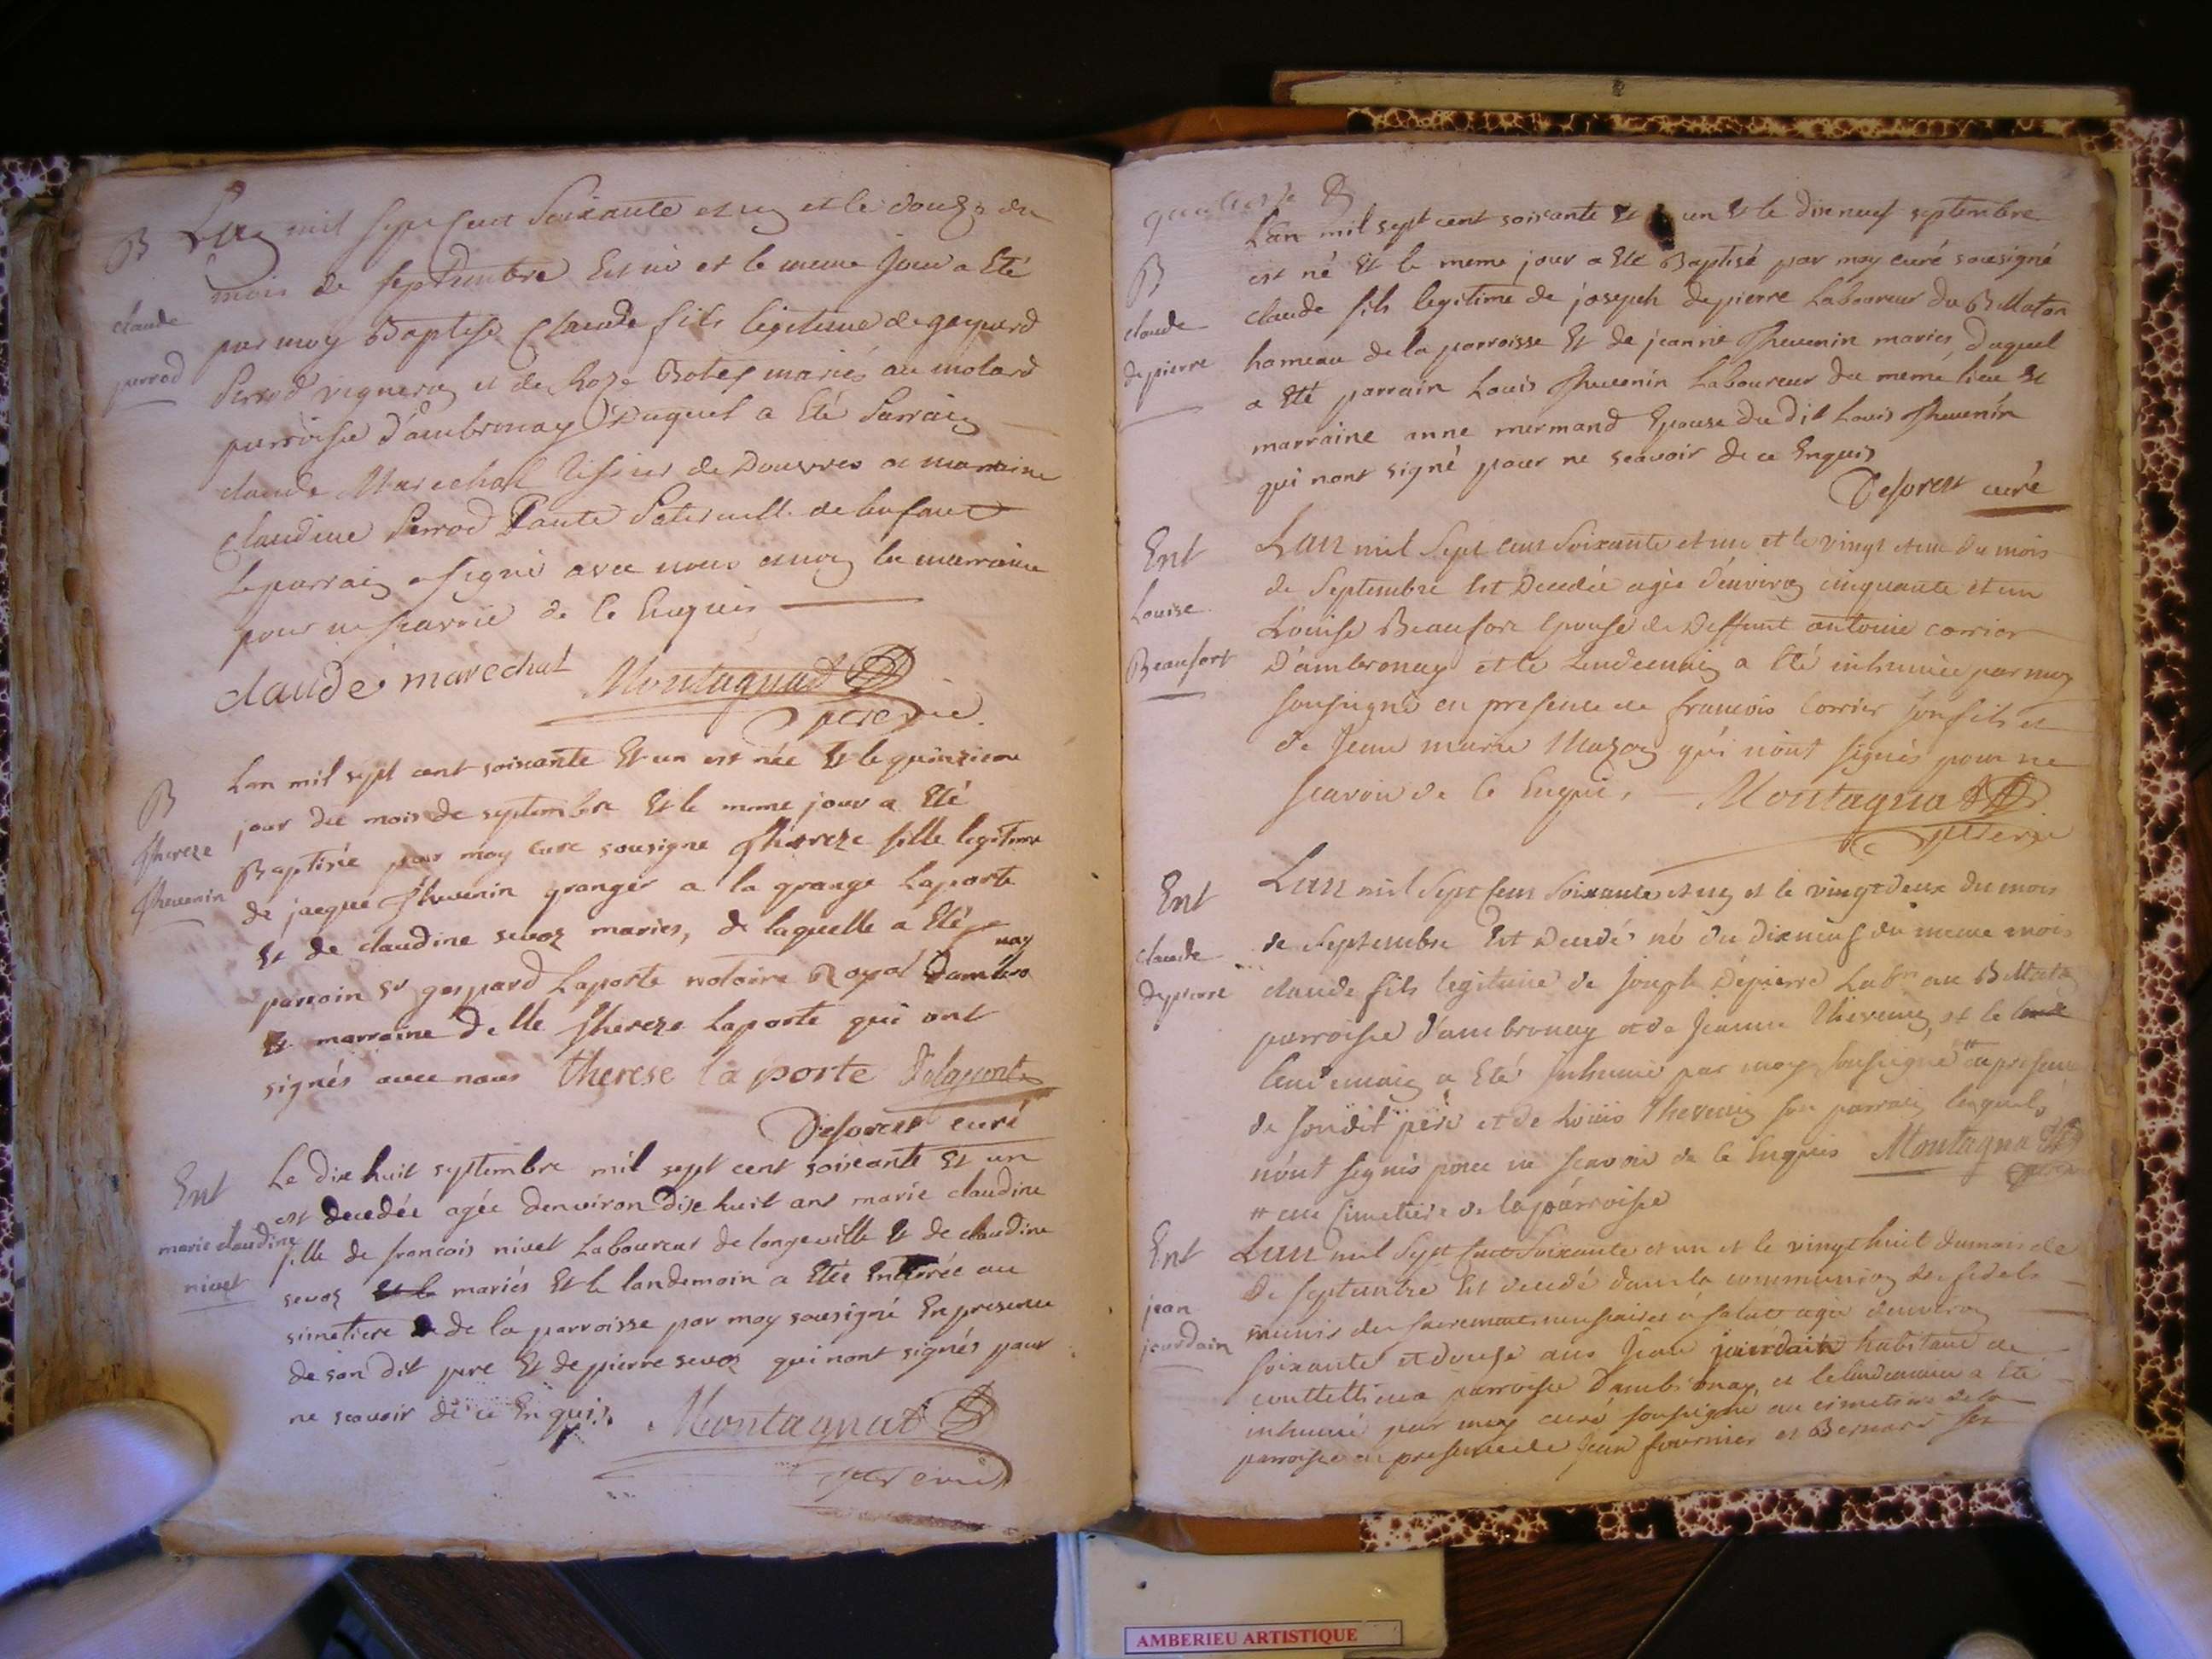 B
claude
perrod
Lan mil sept cent soixante et un et le douze du
mois de septembre Est né et le meme jour a Eté
par moy Baptisé Claude fils legitime de gaspard
Perrod vigneron et de Roze Botex mariés au molard
parroisse d'ambronay Duquel a Eté Parrain
claude Marechal Tissier de Douvres et marraine
Claudine Perrod Tante Paternelle de lenfant
le parrain a signé avec nous et non la marraine
pour ne scavoir de ce Enquis
claude marechal Montagnat
B
Thereze
Thevenin
Lan mil sept cent soixante Et un est née Et le quinzieme
jour du mois de septembre Et le meme jour a Eté
Baptisée par moy curé sousigné Thereze fille legitime
de jacque Thevenin granger a la grange Laporte
Et de claudine sevoz mariés, de laquelle a Eté
parrain Sr gaspard Laporte notoire Royal d'ambro
nay
Et marraine Delle Thereze Laporte qui ont
signés avec nous therese la porte Delaporte
Deforest curé
Ent
marie claudine
nivet
Le dix huit septembre mil sept cent soixante Et un
est decedée agée denviron dix huit ans marie claudine
fille de francois nivet Laboureur de longeville Et de claudine
sevoz Et le mariés Et le landemain a Etée Enterrée au
simetiere de la parroisse par moy sousigné En presence
de son dit pere Et de pierre sevoz qui nont signés pour
ne scavoir de ce Enquis. Montagnat
B
claude
depierre
Lan mil sept cent soixante Et un Et le dix neuf septembre
est né Et le meme jour a Eté Baptisé par moy curé sousigné
claude fils legitime de joseph depierre Laboureur du Billaton
hameau de la parroisse Et de jeanne Thevenin mariés, duquel
a Eté parrain Louis Thevenin Laboureur du meme lieu Et
marraine anne mermand Epouse du dit Louis Thevenin
qui nont signé pour ne scavoir de ce Enquis
Deforest curé
Ent
Louise
Beaufort
Lan mil sept cent soixante et un et le vingt et un du mois
de septembre Est Decedée agée d'environ cinquante et un
Louise Beaufort Epouse de Deffunt antoine corrier
D'ambronay et le lendemain a Eté inhumée par moy
sousigné en presence de francois Corrier son fils et
de Jeane marie Mazoy qui nont signés pour ne
scavoir de ce Enquis, Montagnat
Ent
claude
depierre
Lan mil sept cent soixante et un et le vingt deux du mois
de septembre Est Decedé né du dix neuf du meme mois
claude fils legitime de Joseph Depierre Labr au Billaton
parroisse d'ambronay et de Jeanne Thevenin, et le
lendemain a Eté Inhumé par moy sousigné # en presence
de son dit pere et de Louis Thevenin son parrain lesquels
n'ont signés pour ne scavoir de ce Enquis Montagnat
# au Cimetiere de la parroisse
Ent
jean
jourdain
Lan mil sept cent soixante et un et le vingt huit du mois de
de septembre Est decedé dans la communion des fidels
munis des sacrements necessaires a salut agé denviron
soixante et douze ans Jean jourdain habitant de
parroisse D'ambronay, et le lendemain a Eté
inhumé par moy curé sousigné au cimetiere de la
parroisse en presence de Jean fournier et Bernard
AMBERIEU ARTISTIQUE